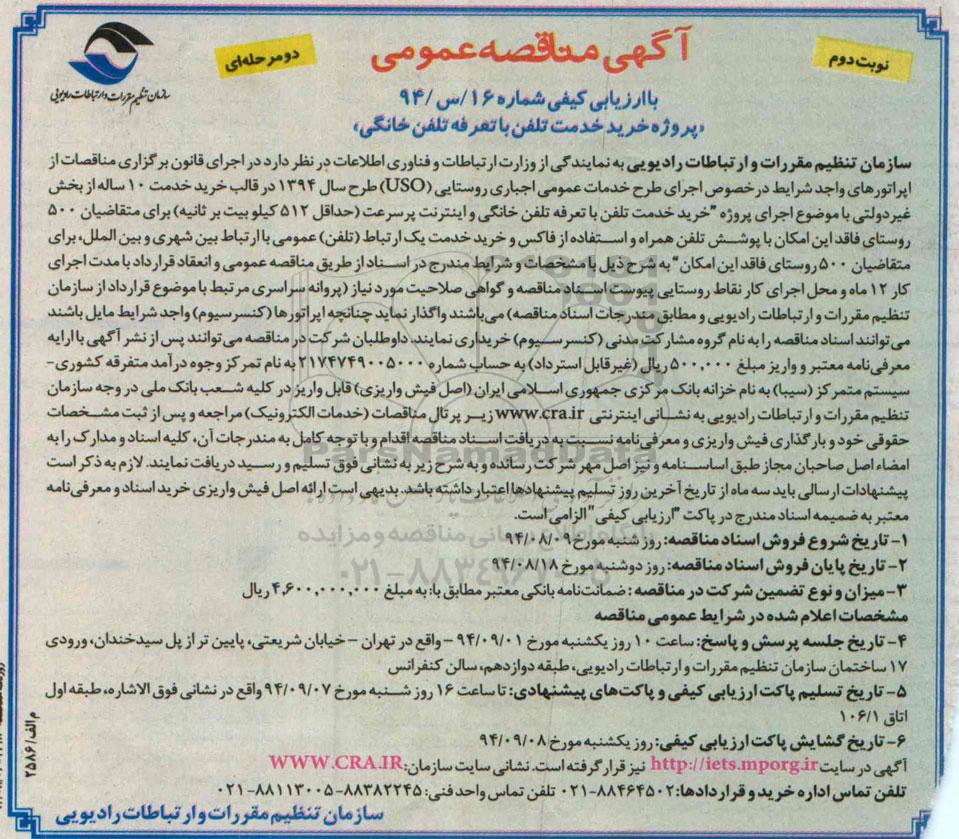 آگهی مناقصه عمومی
نوبت دوم
دو مرحله‌ای
سازمان تنظیم مقررات و ارتباطات رادیویی
با ارزیابی کیفی شماره ۱۶/س/۹۴
«پروژه خرید خدمت تلفن با تعرفه تلفن خانگی»
سازمان تنظیم مقررات و ارتباطات رادیویی به نمایندگی از وزارت ارتباطات و فناوری اطلاعات در نظر دارد در اجرای قانون برگزاری مناقصات از
اپراتورهای واجد شرایط در خصوص اجرای طرح خدمات عمومی اجباری روستایی (USO) طرح سال ۱۳۹۴ در قالب خرید خدمت ۱۰ ساله از بخش
غیردولتی با موضوع اجرای پروژه "خرید خدمت تلفن با تعرفه تلفن خانگی و اینترنت پرسرعت (حداقل ۵۱۲ کیلو بیت بر ثانیه) برای متقاضیان ۵۰۰
روستای فاقد این امکان با پوشش تلفن همراه و استفاده از فاکس و خرید خدمت یک ارتباط (تلفن) عمومی با ارتباط بین شهری و بین الملل، برای
متقاضیان ۵۰۰ روستای فاقد این امکان" به شرح ذیل با مشخصات و شرایط مندرج در اسناد از طریق مناقصه عمومی و انعقاد قرارداد با مدت اجرای
کار ۱۲ ماه و محل اجرای کار نقاط روستایی پیوست اسناد مناقصه و گواهی صلاحیت مورد نیاز (پروانه سراسری مرتبط با موضوع قرارداد از سازمان
تنظیم مقررات و ارتباطات رادیویی و مطابق مندرجات اسناد مناقصه) می‌باشند واگذار نماید چنانچه اپراتورها (کنسرسیوم) واجد شرایط مایل باشند
می‌توانند اسناد مناقصه را به نام گروه مشارکت مدنی (کنسرسیوم) خریداری نمایند. داوطلبان شرکت در مناقصه می‌توانند پس از نشر آگهی با ارایه
معرفی‌نامه معتبر و واریز مبلغ ۵۰۰,۰۰۰ ریال (غیر قابل استرداد) به حساب شماره ۲۱۷۴۷۴۹۰۰۵۰۰۰ به نام تمرکز وجوه درآمد متفرقه کشوری-
سیستم متمرکز (سیبا) به نام خزانه بانک مرکزی جمهوری اسلامی ایران (اصل فیش واریزی) قابل واریز در کلیه شعب بانک ملی در وجه سازمان
تنظیم مقررات و ارتباطات رادیویی به نشانی اینترنتی www.cra.ir زیر پرتال مناقصات (خدمات الکترونیک) مراجعه و پس از ثبت مشخصات
حقوقی خود و بارگذاری فیش واریزی و معرفی‌نامه نسبت به دریافت اسناد مناقصه اقدام و با توجه کامل به مندرجات آن، کلیه اسناد و مدارک را به
امضاء اصل صاحبان مجاز طبق اساسنامه و نیز اصل مهر شرکت رسانده و به شرح زیر به نشانی فوق تسلیم و رسید دریافت نمایند. لازم به ذکر است
پیشنهادات ارسالی باید سه ماه از تاریخ آخرین روز تسلیم پیشنهادها اعتبار داشته باشد. بدیهی است ارائه اصل فیش واریزی خرید اسناد و معرفی‌نامه
معتبر به ضمیمه اسناد مندرج در پاکت "ارزیابی کیفی" الزامی است.
۱- تاریخ شروع فروش اسناد مناقصه: روز شنبه مورخ ۹۴/۰۸/۰۹
۲- تاریخ پایان فروش اسناد مناقصه: روز دوشنبه مورخ ۹۴/۰۸/۱۸
۳- میزان و نوع تضمین شرکت در مناقصه: ضمانت‌نامه بانکی معتبر مطابق با: به مبلغ ۴,۶۰۰,۰۰۰,۰۰۰ ریال
مشخصات اعلام شده در شرایط عمومی مناقصه
۴- تاریخ جلسه پرسش و پاسخ: ساعت ۱۰ روز یکشنبه مورخ ۹۴/۰۹/۰۱ - واقع در تهران - خیابان شریعتی، پایین تر از پل سیدخندان، ورودی
۱۷ ساختمان سازمان تنظیم مقررات و ارتباطات رادیویی، طبقه دوازدهم، سالن کنفرانس
۵- تاریخ تسلیم پاکت ارزیابی کیفی و پاکت‌های پیشنهادی: تا ساعت ۱۶ روز شنبه مورخ ۹۴/۰۹/۰۷ واقع در نشانی فوق الاشاره، طبقه اول
اتاق ۱۰۶/۱
۶- تاریخ گشایش پاکت ارزیابی کیفی: روز یکشنبه مورخ ۹۴/۰۹/۰۸
آگهی در سایت http://iets.mporg.ir نیز قرار گرفته است. نشانی سایت سازمان: WWW.CRA.IR
تلفن تماس اداره خرید و قراردادها: ۸۸۴۶۴۵۰۲-۰۲۱ تلفن تماس واحد فنی: ۸۸۳۸۲۲۴۵-۸۸۱۱۳۰۰۵-۰۲۱
سازمان تنظیم مقررات و ارتباطات رادیویی
م الف/۲۵۸۶
ParsNamadData
۰۲۱-۸۸۳۴۹۶۷۰-۵